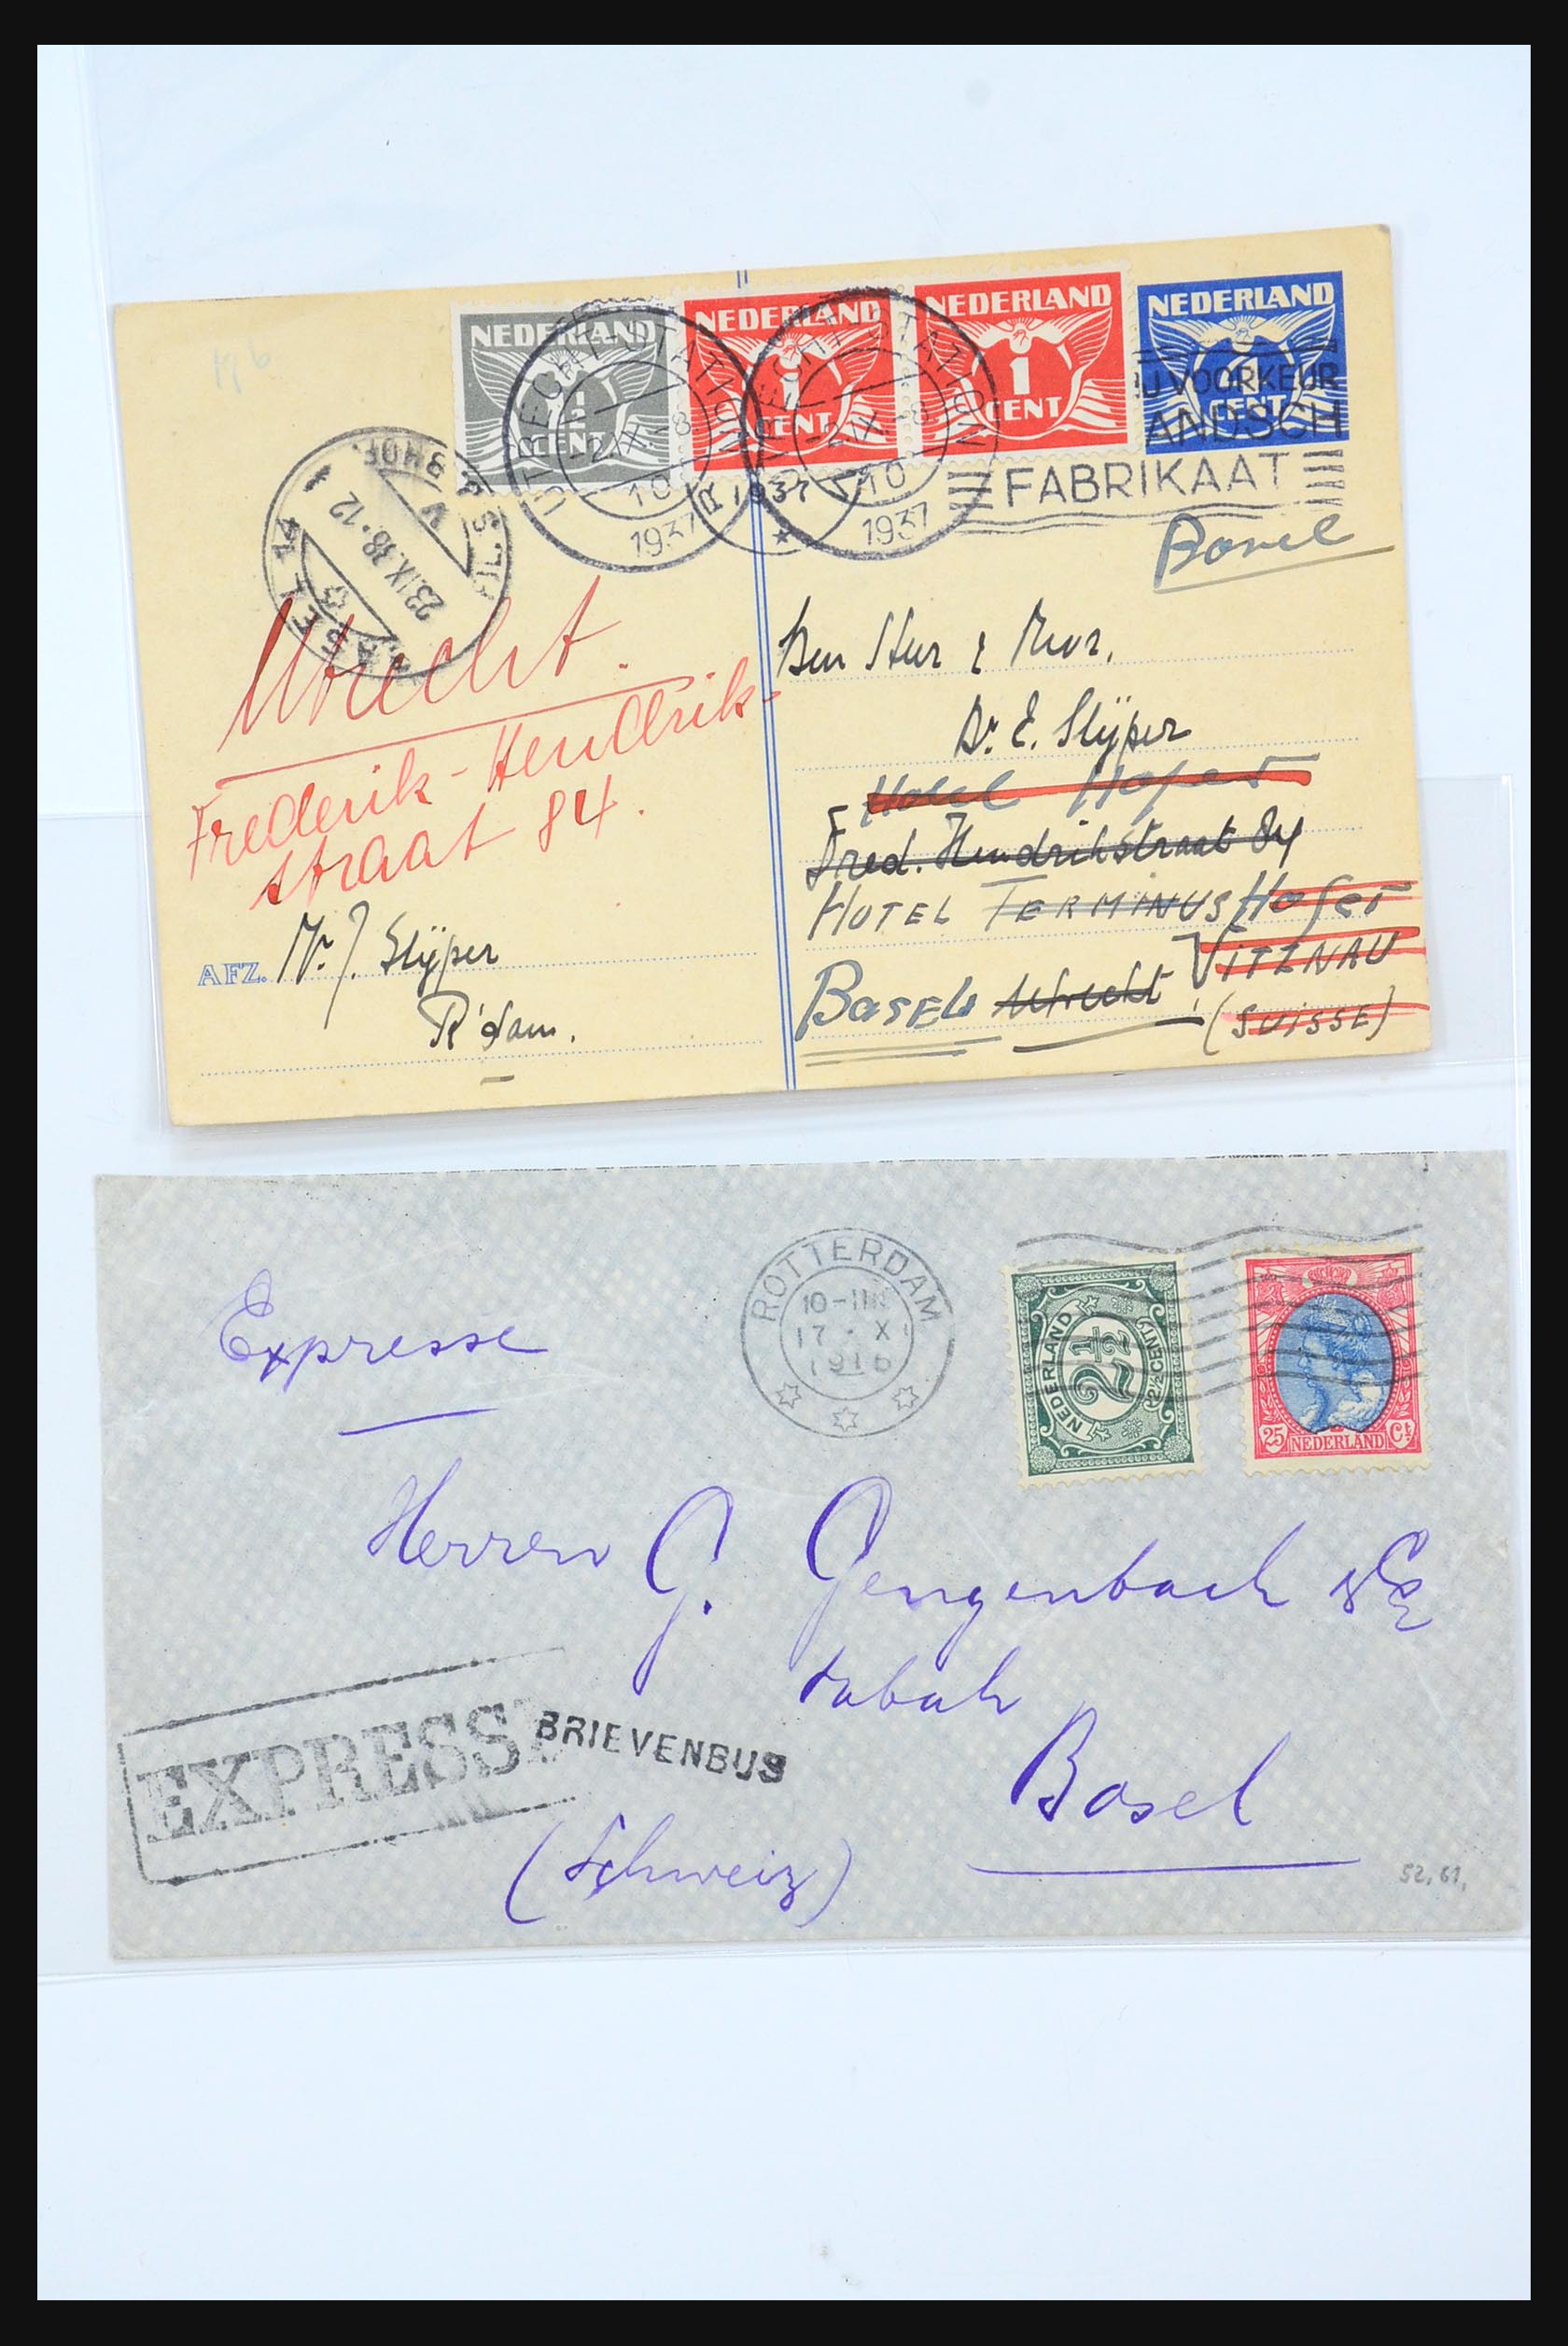 NEDERLAND NEDERLAND NEDERLAND NEDERLAND
½ CENT 1 CENT 1 CENT CENT
UTRECHT STATION
2 IX -8
10
1937
UTRECHT STATION
2 IX -8
10
1937
1937
U VOORKEUR
ANDSCH
FABRIKAAT
23.IX.38-12
Basel
Utrecht.
Frederik-Hendrik-
straat 84.
Den Heer & Mevr.
Dr. E. Slÿper
Hotel Hofer
Fred. Hendrikstraat 84
HOTEL TERMINUS Hofer
VITZNAU
BASEL Utrecht (SUISSE)
AFZ. Mr. J. Slÿper
R'dam.
ROTTERDAM
17 . X
1916
NEDERLAND
2½
(2½ CENT)
25 NEDERLAND Ct
Expresse
Herren G. Gengenbach & Co
Tabak
Basel
(Schweiz)
EXPRESSE
BRIEVENBUS
52, 61,